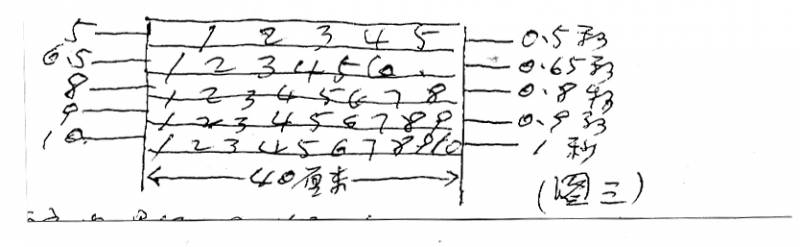 5 1 2 3 4 5 0.5秒
6.5 1 2 3 4 5 6. 0.65秒
8 1 2 3 4 5 6 7 8 0.8秒
9 1 2 3 4 5 6 7 8 9 0.9秒
10. 1 2 3 4 5 6 7 8 9 10 1秒
40厘米
(图三)